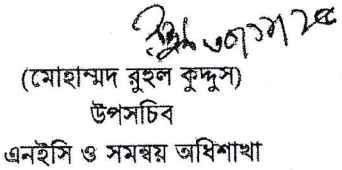 (মোহাম্মদ রুহুল কুদ্দুস)
উপসচিব
এনইসি ও সমন্বয় অধিশাখা